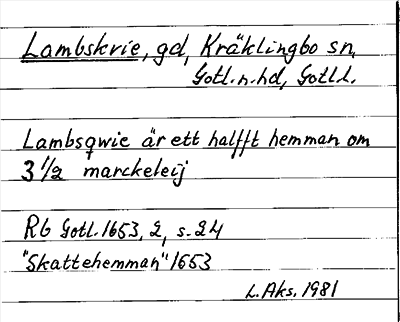 Lambskvie, gd, Kräklingbo sn,
Gotl. n. hd, Gotl l.
Lambsqwie är ett halfft hemman om
3 1/2 marckeleij
Rb Gotl. 1653, 2, s. 24
"Skattehemman" 1653
L. Aks. 1981